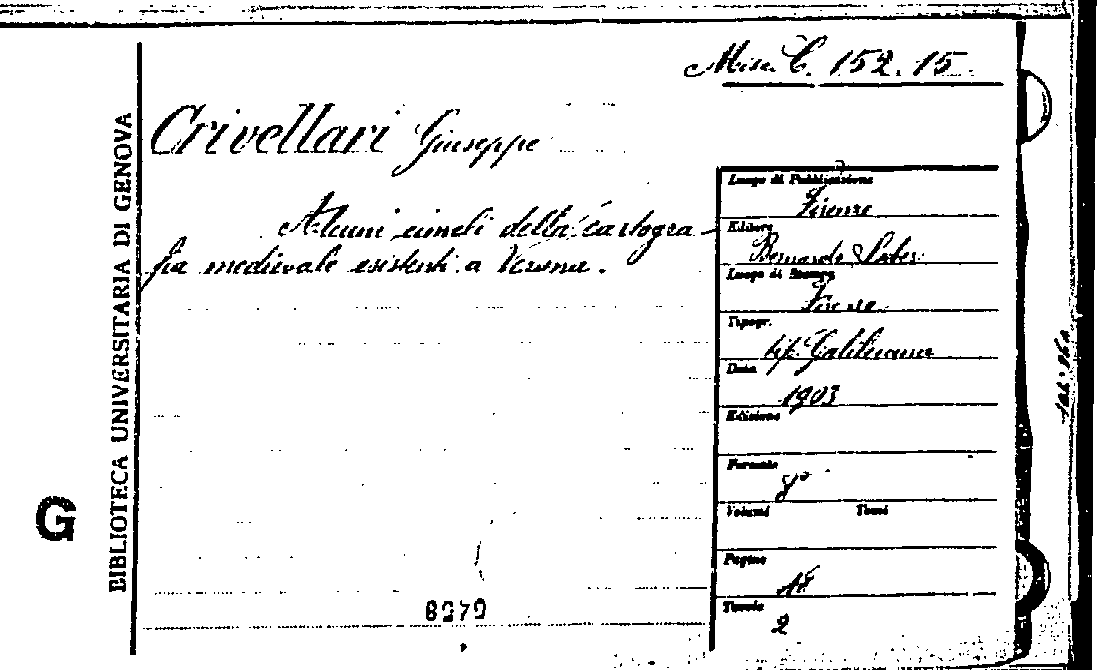 Misc. C. 152. 15.
Crivellari Giuseppe
Alcuni cimeli della cartogra-
fia medievale esistenti a Verona.
Luogo di Pubblicazione
Firenze
Editore
Bernardo Seeber
Luogo di Stampa
Firenze
Tipogr.
tip. Galileiana
Data
1903
Edizione
Formato
8°
Volumi Tomi
Pagine
18
Tavole
2
BIBLIOTECA UNIVERSITARIA DI GENOVA
G